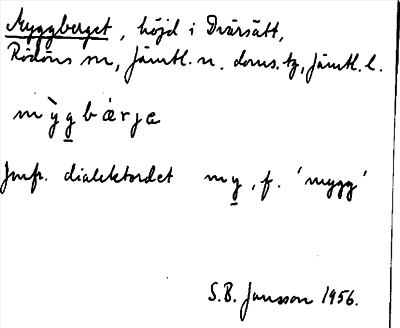 Myggberget, höjd i Dvärsätt,
Rödöns sn, Jämtl. n. doms.tg, Jämtl. l.
mỳg̲bǽrjæ
Jmfr. dialektordet my̲, f. 'mygg'
S.B. Jansson 1956.